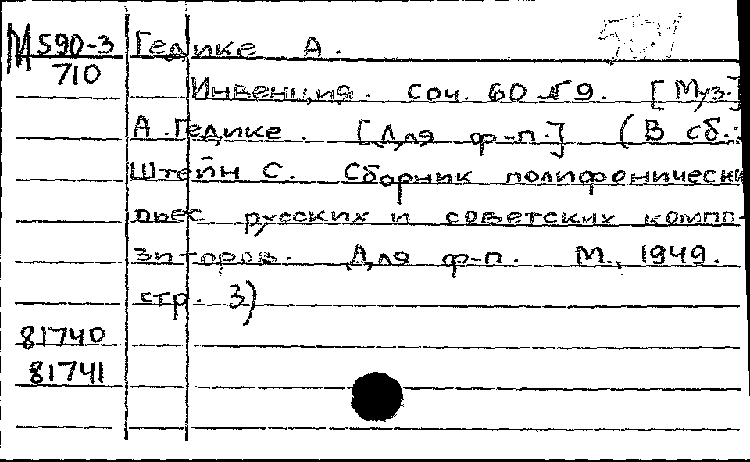 М590-3 Гедике А.
710
Инвенция. Соч. 60 №9. [Муз.]
А. Гедике. [Для ф-п.] (В сб.:
Штейн С. Сборник полифонически
пьес русских и советских компо-
зиторов. Для ф-п. М., 1949.
стр. 3)
81740
81741